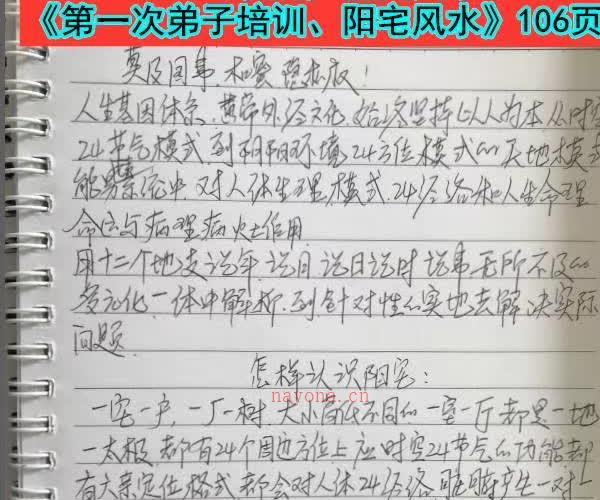 《第一次弟子培训、阳宅风水》106页
人生基因体系,黄帝外经文化,始终坚持以人为本,从时空
24节气模式到阴阳环境24方位模式的天地模式
能量系统中,对人体生理模式,24经络和人生命理
命位与病理病灶作用
用十二个地支说年,说月,说日说时,说事无所不及的
多元化一体中解析,到针对性的实地去解决实际
问题
怎样认识阳宅:
nayona.cn
一宅一户,一厂一树,大小高低不同的一室一厅都是一地
一太极,都有24个周边方位上应时空24节气的功能都
有六亲定位格式都会对人体24经络产生一对一